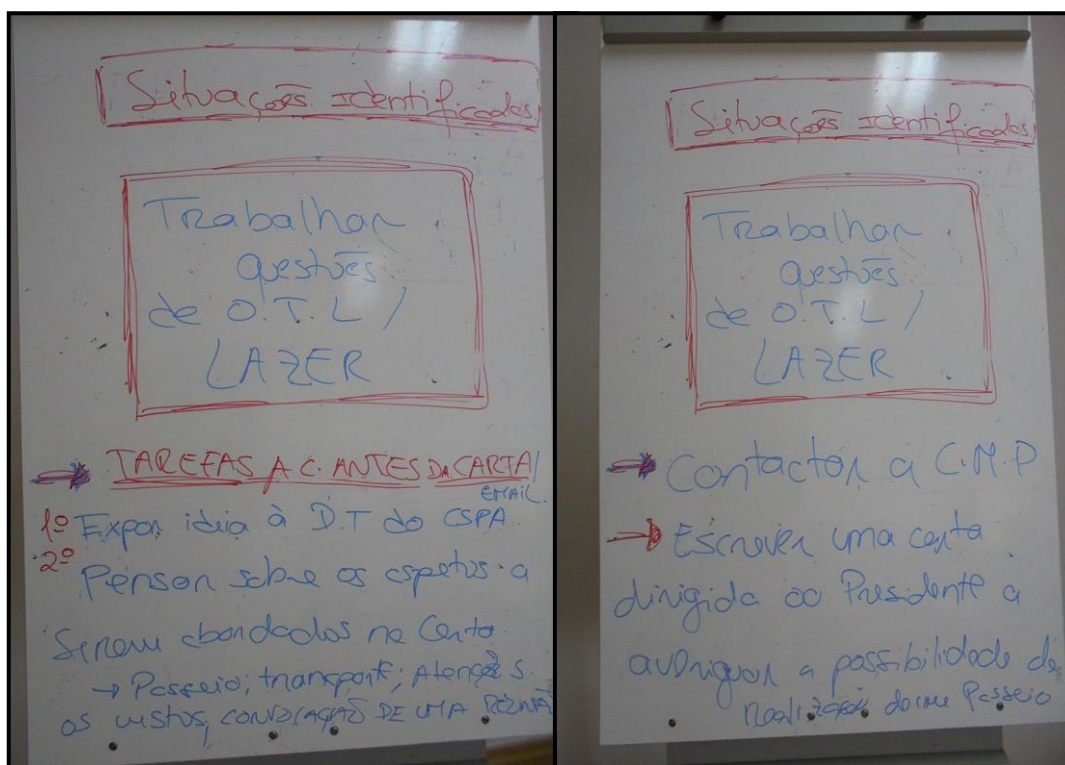 Situações Identificadas
Trabalhar
questões
de O.T.L /
LAZER
→ TAREFAS A C. ANTES DA CARTA/
EMAIL
1º Expor ideia à D.T do CSPA
2º Pensar sobre os aspetos a
Serem abordados na Carta
→ Passeio; transporte; Atenção
os custos; CONVOCAÇÃO DE UMA REUNIÃO
Situações Identificadas
Trabalhar
questões
de O.T.L /
LAZER
→ Contactar a C.M.P
→ Escrever uma carta
dirigida ao Presidente a
averiguar a possibilidade de
Realização dorme Passeio